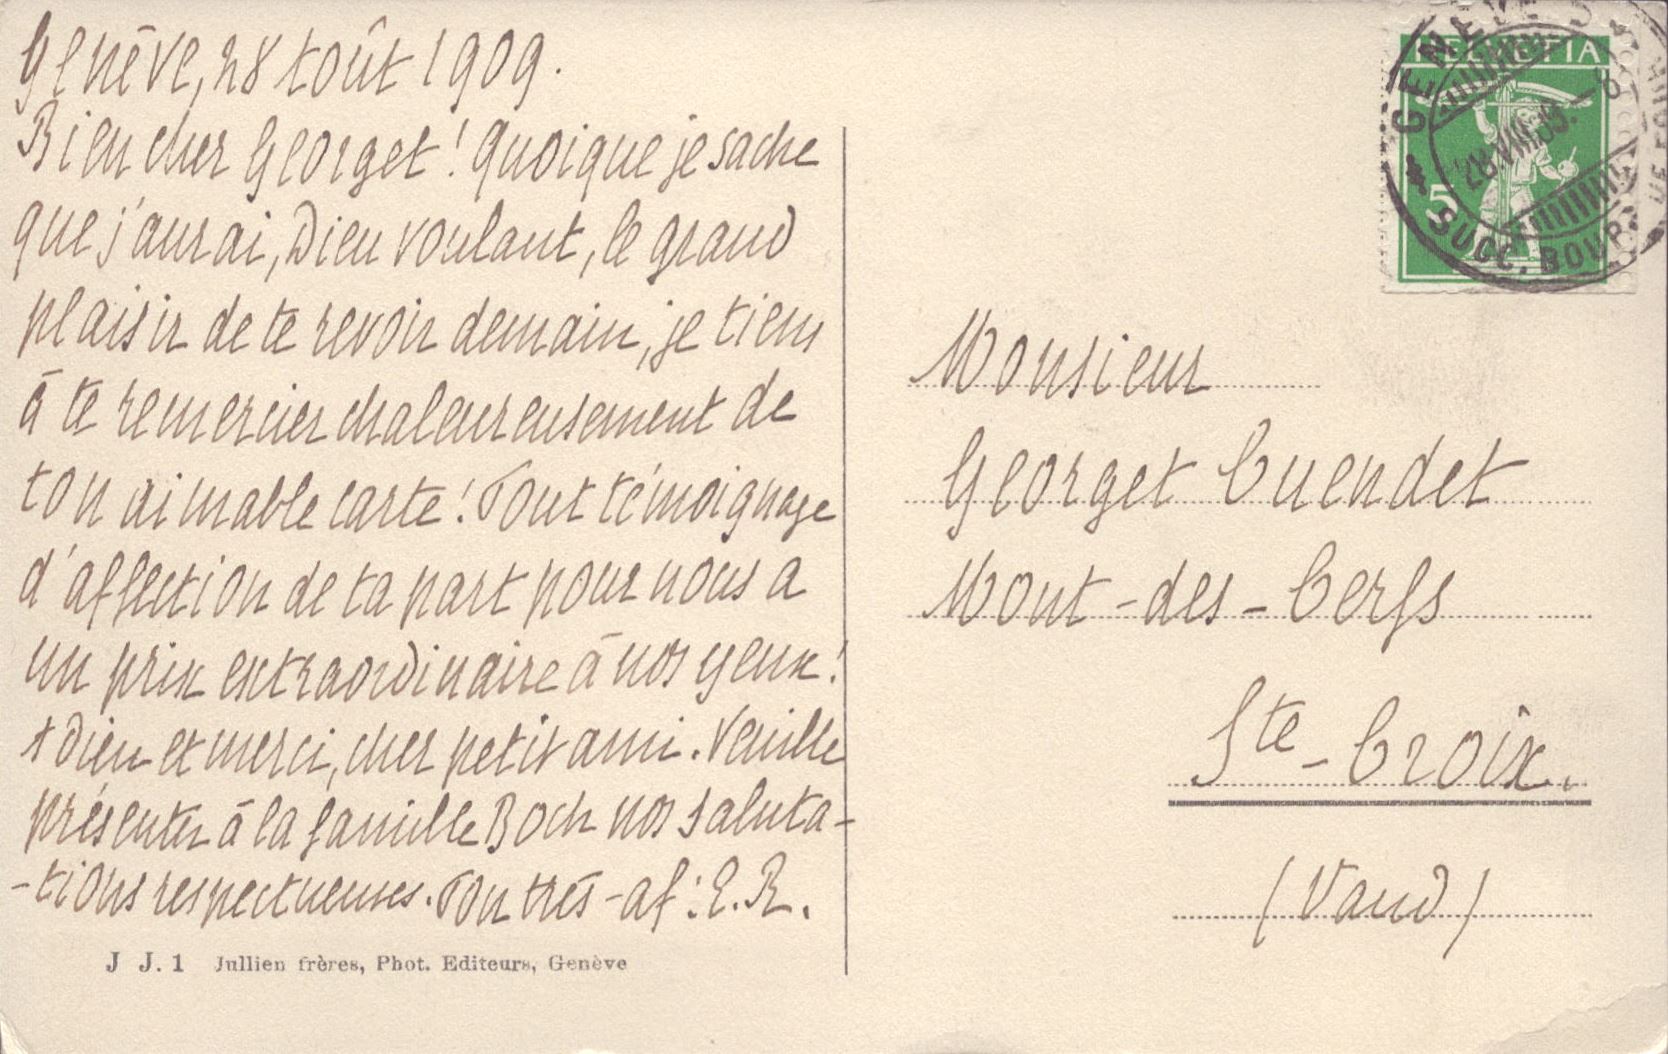 Genève, 28 Août 1909.
Bien cher Georget! Quoique je sache
que j'aurai, Dieu voulant, le grand
plaisir de te revoir demain, je tiens
à te remercier chaleureusement de
ton aimable carte! Tout témoignage
d'affection de ta part pour nous a
un prix extraordinaire à nos yeux!
Adieu et merci, cher petit ami. Veuille
présenter à la famille Boch nos saluta-
-tions respectueuses. Ton très-af: E. R.
J J. 1 Jullien frères, Phot. Editeurs, Genève
HELVETIA
5
GENÈVE
28.VIII.09.
SUCC. BOURG
Monsieur
Georget Cuendet
Mont-des-Cerfs
Ste-Croix.
(Vaud)